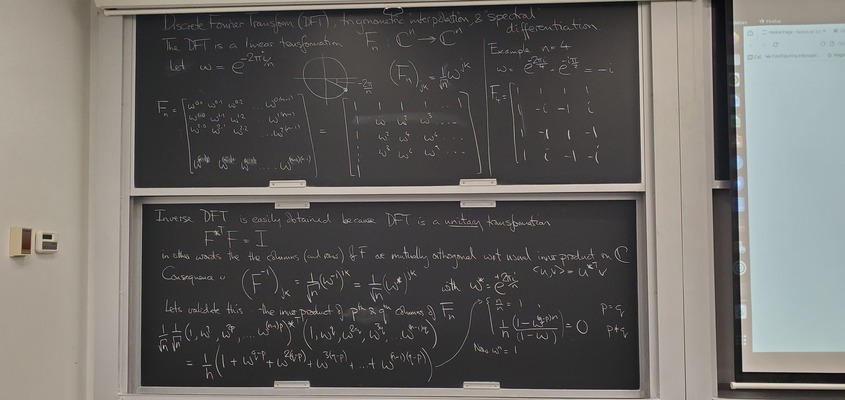 Discrete Fourier Transform (DFT), trigonometric interpolation, & spectral differentiation
The DFT is a linear transformation F_n : ℂ^n → ℂ^n
Let ω = e^{-2πi/n}
-2π/n
(F_n)_{jk} = 1/√n ω^{jk}
F_n = [ ω^{0·0} ω^{0·1} ω^{0·2} ... ω^{0(n-1)}
= [ 1 1 1 1 ... 1
1 ω ω² ω³ ...
1 ω² ω⁴ ω⁶ ...
1 ω³ ω⁶ ω⁹ ...
Example n = 4
ω = e^{-2πi/4} = e^{-iπ/2} = -i
F_4 = [ 1 1 1 1
1 -i -1 i
1 -1 1 -1
1 i -1 -i ]
Inverse DFT is easily obtained because DFT is a unitary transformation
F^{*T} F = I
in other words the the columns (and rows) of F are mutually orthogonal wrt usual inner product on ℂ
<u,v> = u^{*T} v
Consequence is (F^{-1})_{jk} = 1/√n (ω^{-1})^{jk} = 1/√n (ω^*)^{jk} with ω^* = e^{+2πi/n}
Lets validate this - the inner product of p^{th} & q^{th} columns of F_n
1/√n 1/√n (1, ω^p, ω^{2p}, ... ω^{(n-1)p})^{*T} (1, ω^q, ω^{2q}, ω^{3q} ... ω^{(n-1)q})
= 1/n (1 + ω^{q-p} + ω^{2(q-p)} + ω^{3(q-p)} + ... + ω^{(n-1)(q-p)})
n/n = 1 p = q
1/n (1-ω^{(q-p)n})/(1-ω) = 0 p ≠ q
Now ω^n = 1